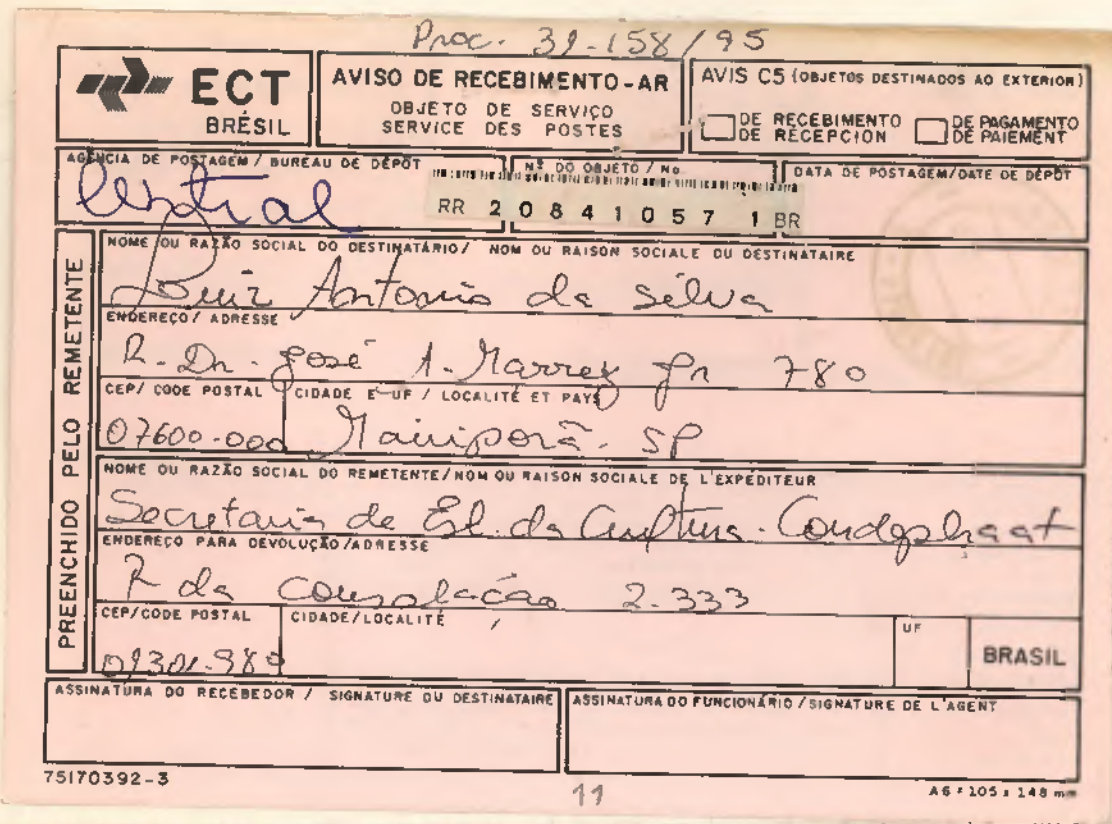 Proc. 31-158/95
ECT
BRÉSIL
AVISO DE RECEBIMENTO-AR
OBJETO DE SERVIÇO
SERVICE DES POSTES
AVIS C5 (OBJETOS DESTINADOS AO EXTERIOR)
DE RECEBIMENTO
DE RÉCEPCION
DE PAGAMENTO
DE PAIEMENT
AGÊNCIA DE POSTAGEM / BUREAU DE DÉPÔT
Central
Nº DO OBJETO / No
RR 2 0 8 4 1 0 5 7 1 BR
DATA DE POSTAGEM/DATE DE DÉPÔT
PREENCHIDO PELO REMETENTE
NOME OU RAZÃO SOCIAL DO DESTINATÁRIO/ NOM OU RAISON SOCIALE DU DESTINATAIRE
Luiz Antonio da Silva
ENDEREÇO/ ADRESSE
R. Dr. José A. Marrey Jr 780
CEP/ CODE POSTAL
CIDADE E UF / LOCALITÉ ET PAYS
07600-000
Mairiporã - SP
NOME OU RAZÃO SOCIAL DO REMETENTE/NOM OU RAISON SOCIALE DE L'EXPÉDITEUR
Secretaria de Est. da Cultura - Condephaat
ENDEREÇO PARA DEVOLUÇÃO/ADRESSE
R da Consolação 2.333
CEP/CODE POSTAL
CIDADE/LOCALITÉ
UF
BRASIL
01301-980
ASSINATURA DO RECEBEDOR / SIGNATURE DU DESTINATAIRE
ASSINATURA DO FUNCIONÁRIO/SIGNATURE DE L'AGENT
75170392-3
11
A6 = 105 x 148 mm